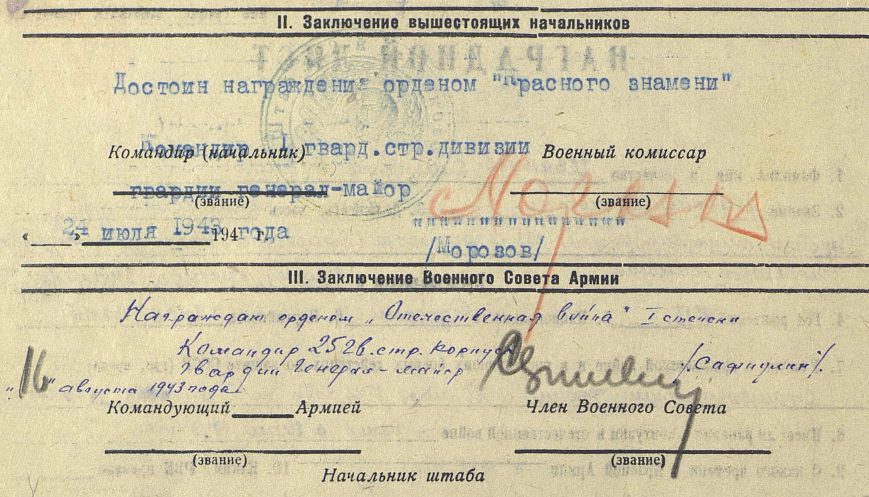 II. Заключение вышестоящих начальников
Достоин награждения орденом "Красного знамени"
Командир (начальник) Военный комиссар
Командир 1 гвард.стр.дивизии
гвардии генерал-майор
(звание) (звание)
" " 194 г.
24 июля 1943 года
/Морозов/
III. Заключение Военного Совета Армии
Награждаю орденом „Отечественная война" I степени
Командир 25 гв. стр. корпуса
гвардии Генерал-майор /Сафиулин/.
"16" августа 1943 года
Командующий Армией Член Военного Совета
(звание) (звание)
Начальник штаба